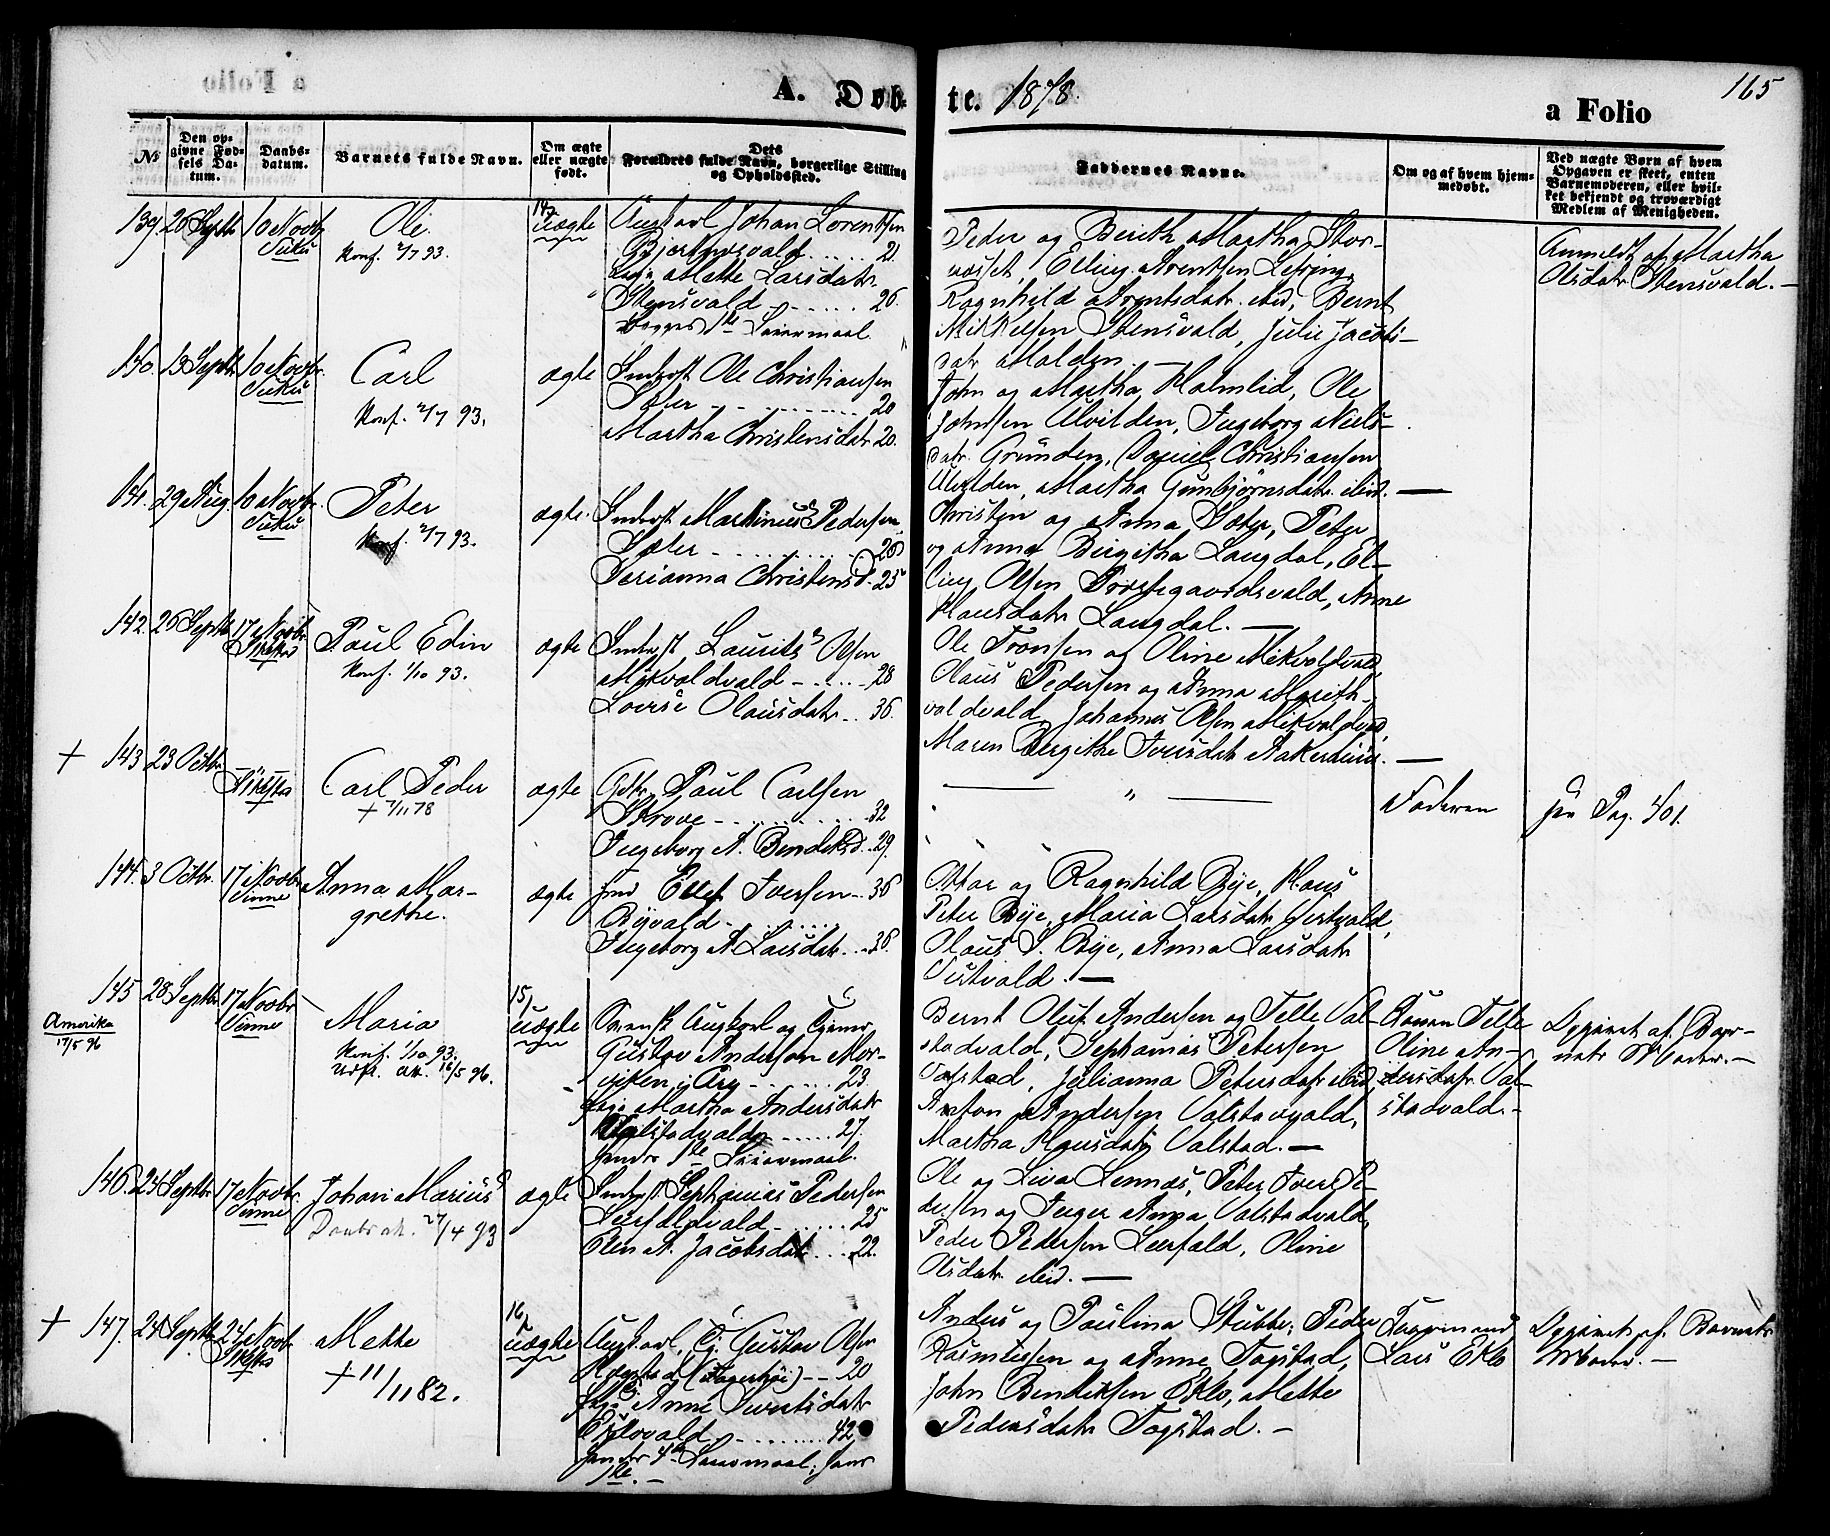 A. Døb-
te. 1878.
165
a Folio
No
Den op-
givne Fød-
sels Da-
tum.
Daabs-
datum.
Barnets fulde Navn.
Om ægte
eller uægte
født.
Dets
Forældres fulde Navn, borgerlige Stilling
og Opholdssted.
Faddernes Navne.
Om og af hvem hjem-
medøbt.
Ved uægte Børn af hvem
Opgaven er skeet, enten
Barnemoderen, eller hvil-
ket bekjendt og troværdigt
Medlem af Menigheden.
139. 20 Septbr 10 Novbr
Ole.
Konf. 2/7 93.
14/ uægte
Ungkarl Johan Lorentsen
21.
Pige Mette Larsdatr.
Stensvald 26.
Begges 1ste Leiermaal.
Peder og Berith Martha Stor-
Elling Arentsen
Ragnhild Arentsdatr. ibid, Bernt
Mikkelsen Stensvald, Julie Jacobs-
datr. Molden. —
Anmeldt af Martha
Olsdatr. Stensvald. —
140. 13 Septbr 10 Novbr.
Carl
Konf. 2/7 93.
ægte
Inderst Ole Christiansen
Sæter 20
Martha Christensdatr. 20.
John og Martha Holmlid, Ole
Johnsen Ulvilden, Ingeborg Niels-
datr. Grunden, Daniel Christiansen
Ulvilden, Martha Gunbjørnsdatr. ibid. —
141. 29 Aug 10 Novbr.
Peter
Konf. 2/7 93.
ægte.
Inderst Martinus Pedersen
Sæter 26
Serianna Christensd. 25
Christen og Anna Sæter, Peter
og Anna Birgitha Langdal, El-
ling Olsen Præstegaardsvald, Anne
Hansdatr. Langdal. —
142. 26 Septbr 17 Novbr
Paul Edin
Konf. 1/10 93.
ægte
Inderst Laurits Olsen
Mikvoldvald 28
Lovise Olausdatr. 36.
Ole Tronsen og Oline Mikvoldvald,
Olaus Pedersen og Anna Marith
valdvald, Johannes Olsen Mikvoldvald,
Maren Bergithe Iversdatr. —
+ 143 23 Octbr.
Carl Peder
+ 7/11 78
ægte
Gdbr. Paul Carlsen
Skrove 32
Ingeborg A. Bendiksd. 29.
— " —
Faderen
Pag. 401.
144. 3 Octbr. 17 Novbr
Vinne
Anna Mar-
grethe.
ægte
Ind Ellef Iversen 36
Byvald
Ingeborg A Larsdatr. 36.
Ottar og Ragnhild Bye, Hans
Peter Bye, Maria Larsdatr. Vestvald,
Olaus S. Bye, Anna Larsdatr
Vestvald. —
145 28 Septbr 17 Novbr
Vinne
Amerika
17/5 96
Maria
Konf. 1/10 93.
Udfl. att. 16/5 96.
15/ uægte
Svensk Ungkarl og
Gustav Andersen Mor-
23.
Pige Martha Andersdatr
Valstadvald 27.
1ste Leiermaal.
Bernt Oluf Andersen og Telle Val-
stadvald, Sephanias Petersen
Valstad, Julianna Petersdatr. ibid,
Anton Andersen Valstadvald,
Martha Hansdatr Valstad. —
Konen Telle
Oline An-
dersdatr. Val-
stadvald. -
Opgivet af Bar-
nets Moder. —
146. 24 Septbr 17 Novbr.
Vinne
Johan Marius
Daabsatt. 27/4 93
ægte
Inderst Sephanias Pedersen
Leirfaldvald 25
Elen A. Jacobsdatr 22.
Ole og Liva Lennæs, Peter Iver Pe-
dersen og Inger Anna Valstadvald,
Peder Pedersen Leirfald, Oline
Olsdatr. ibid. —
+ 147. 24 Septbr 24 Novbr
Mette
+ 11/11 82.
16/ uægte
Ungkarl, Gustav Olsen
20
Pige Anne Sivertsdatr
Eklovald 42
4de Leiermaal;
1ste. —
Anders og Paulina Stubbe, Peder
Rasmussen og Anne Togstad,
John Bendiksen Eklo, Mette
Pedersdatr Togstad. —
Lars Eklo
Opgivet af Barnets
Moder. —